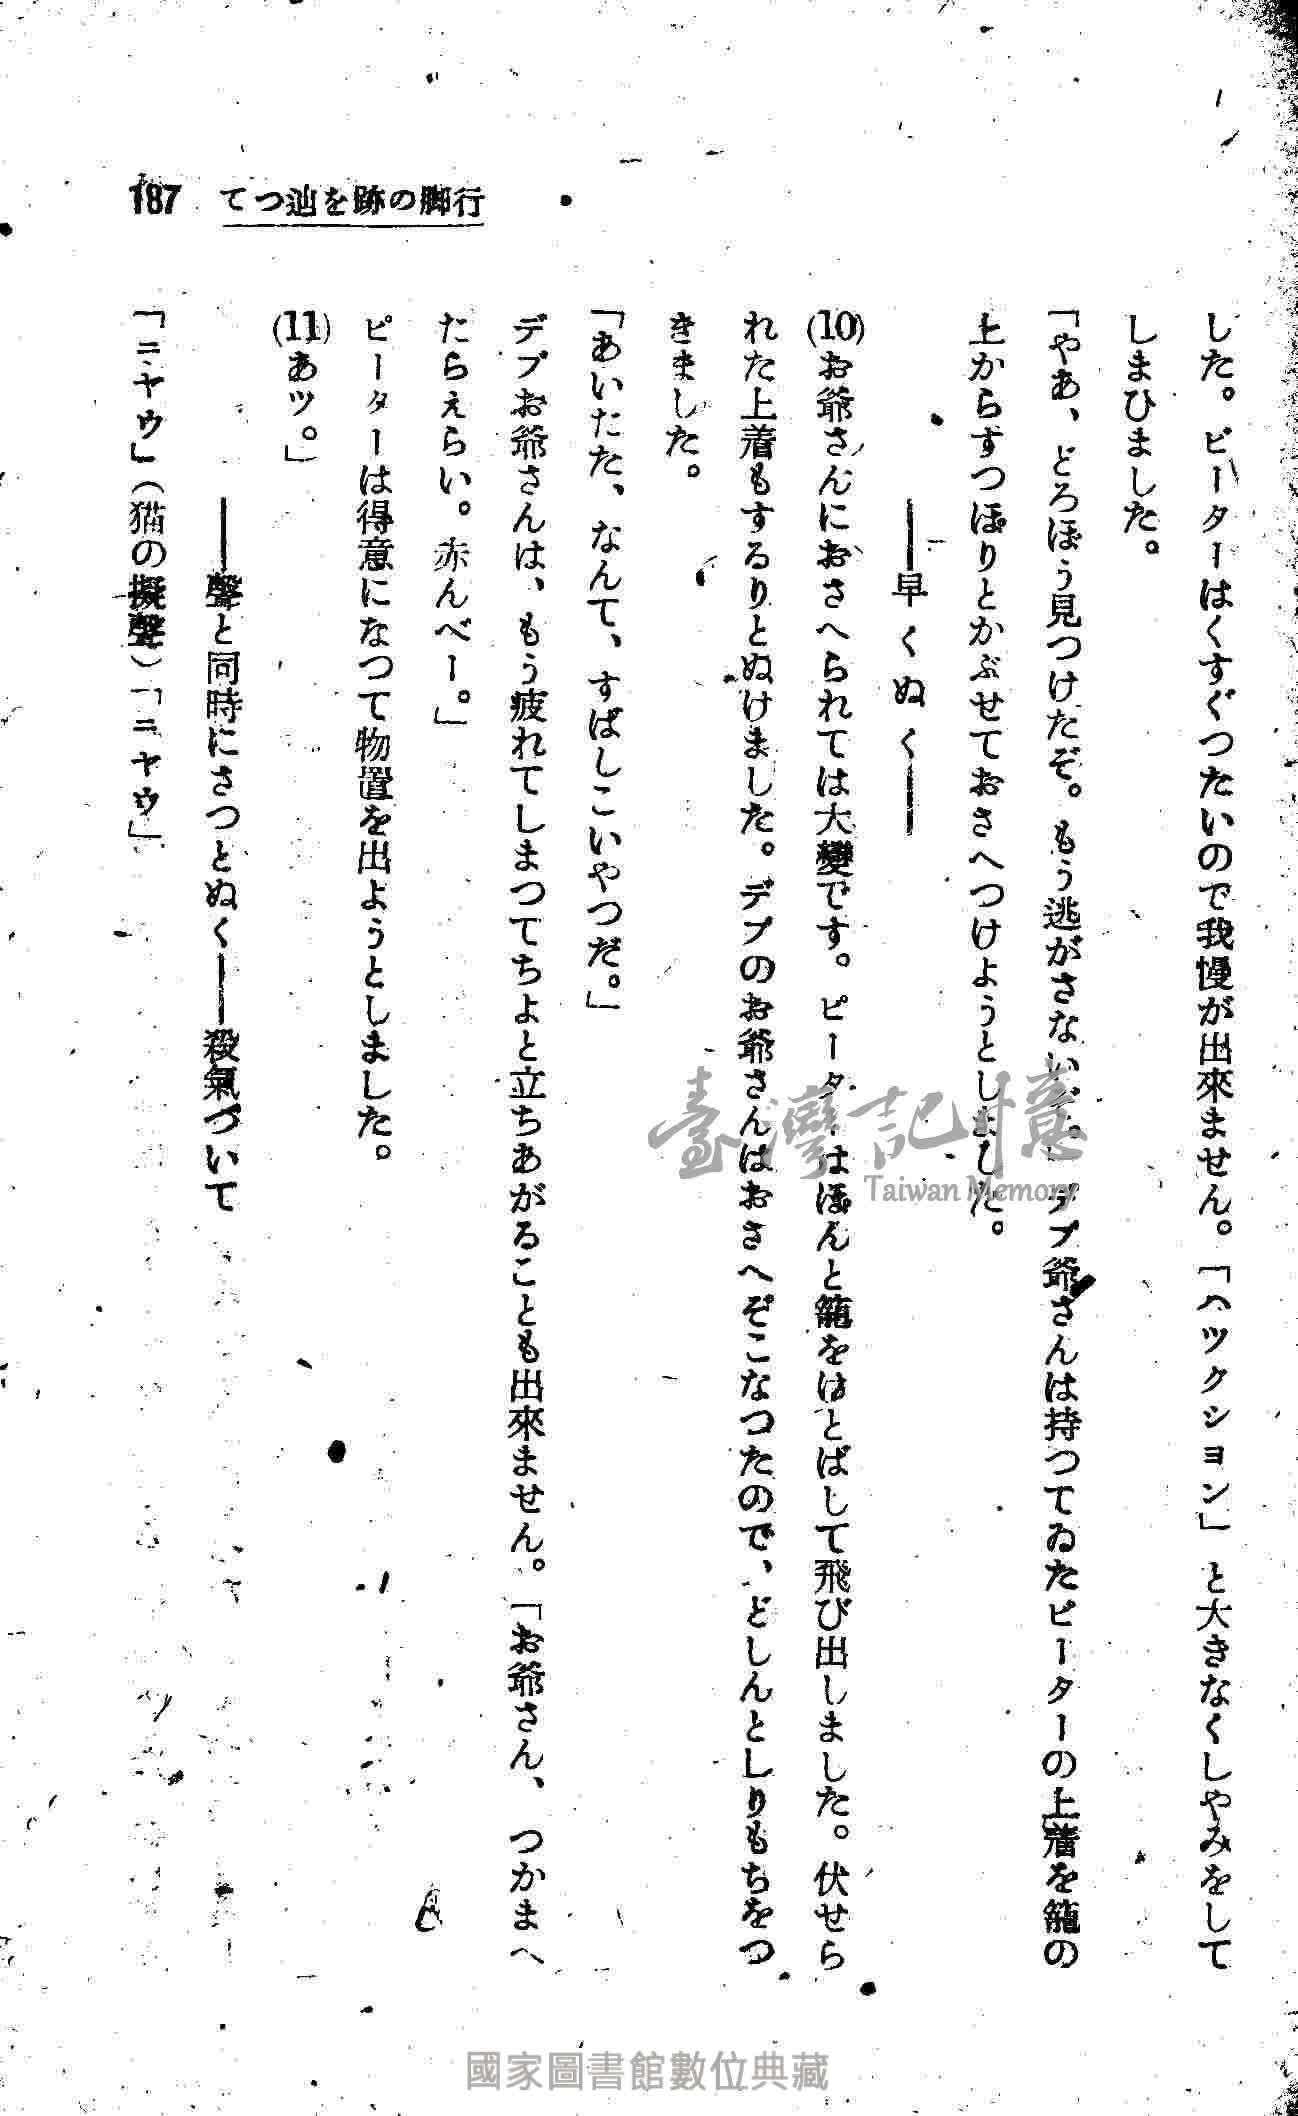 187 てつ辿を跡の脚行
した。ピーターはくすぐつたいので我慢が出來ません。「ハツクシヨン」と大きなくしやみをして
しまひました。
「やあ、どろぼう見つけたぞ。もう逃がさない デブ爺さんは持つてゐたピーターの上着を籠の
上からすつぽりとかぶせておさへつけようとしました。
――早くぬく――
(10)お爺さんにおさへられては大變です。ピーターはぽんと籠をけとばして飛び出しました。伏せら
れた上着もするりとぬけました。デブのお爺さんはおさへぞこなつたので、どしんとしりもちをつ
きました。
「あいたた、なんて、すばしこいやつだ。」
デブお爺さんは、もう疲れてしまつてちよと立ちあがることも出來ません。「お爺さん、つかまへ
たらえらい。赤んべー。」
ピーターは得意になつて物置を出ようとしました。
(11)あツ。」
――聲と同時にさつとぬく――殺氣づいて
「ニヤウ」(猫の擬聲)「ニヤウ」
臺灣記憶
Taiwan Memory
國家圖書館數位典藏